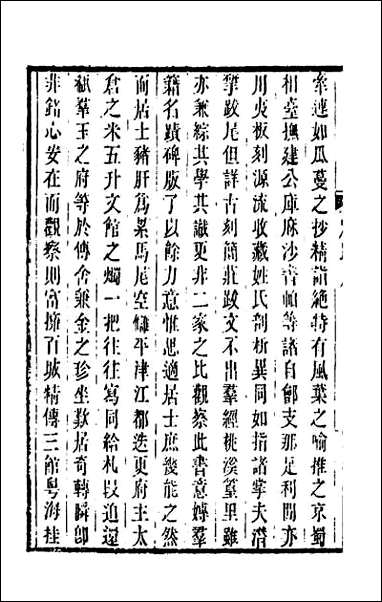 牽連如瓜蔓之抄精詣絶特有風葉之喻推之京蜀
相臺撫建公庫麻沙書帕等諸自鄶支那足利間亦
川夷板刻源流收藏姓氏剖析異同如指諸掌夫潛
揅跋尾但詳古刻簡莊跋文不出羣經桃溪篁里雖
亦兼綜其學其識更非二家之比觀察此書意媷羣
籍名蹟碑版了以餘力意惟思適居士庶幾能之然
而居士豬肝爲累馬尾空慚平津江都迭更府主太
倉之米五升文館之燭一把往往寫同給札跋迫還
瓻羣玉之府等於傳舍兼金之珍坐歎居奇轉瞬卽
非銘心安在而觀察則富擁百城精傳三館粵海挂